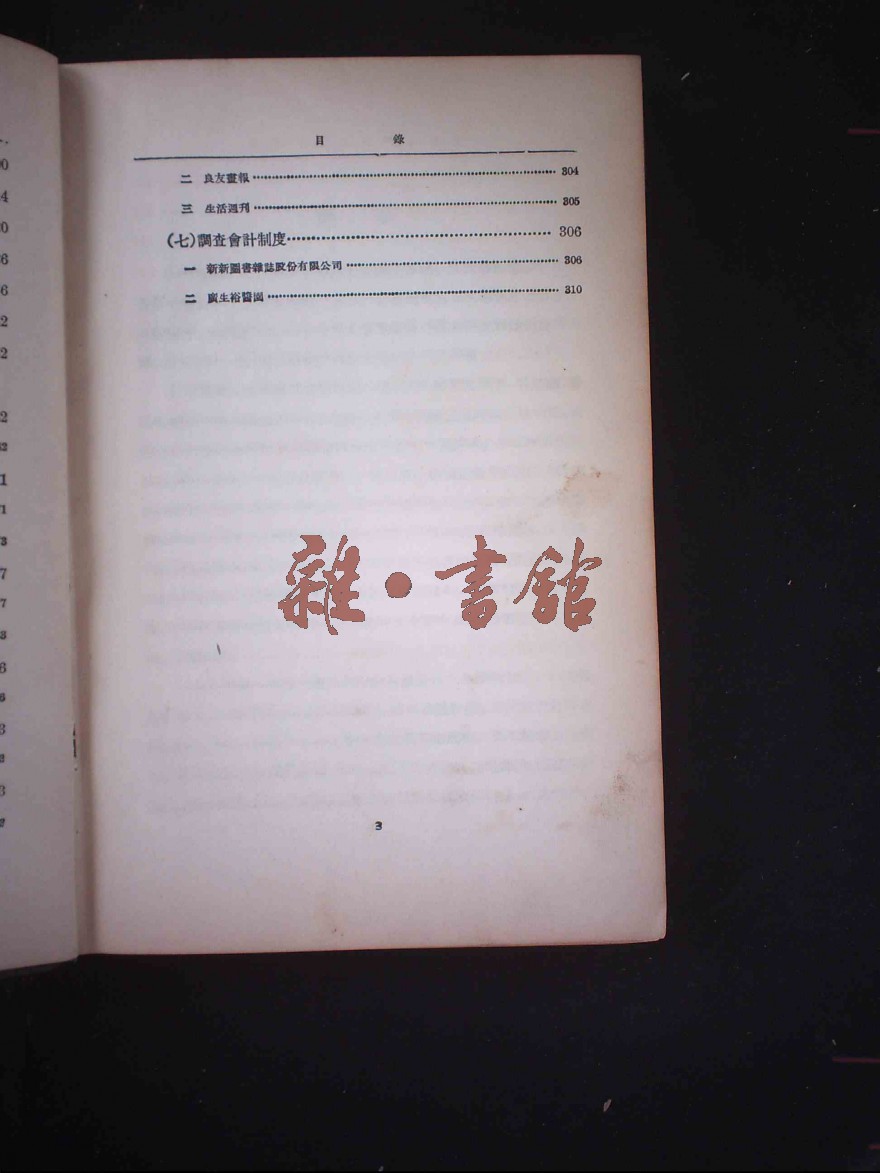 目錄
二 良友畫報 304
三 生活週刊 305
(七)調查會計制度 306
一 新新圖書雜誌股份有限公司 306
二 廣生裕醫園 310
雜·書館
3